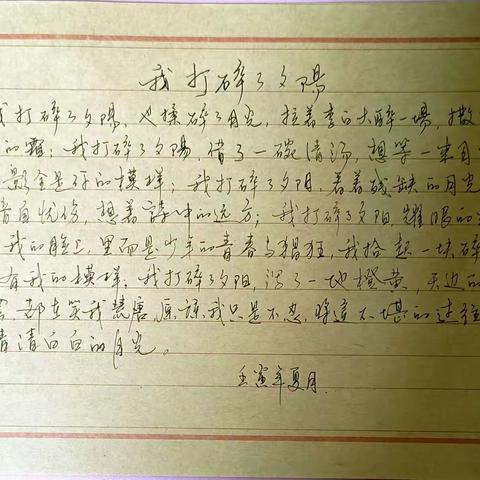 我打碎了夕陽
我打碎了夕陽，也揉碎了月光，拉着李白大醉一場，撒
的霜；我打碎了夕陽，借了一碗清湯，想等一来月
影全是你的模样；我打碎了夕阳，看着残缺的月光
暗自忧伤，想着詩中的远方；我打碎了夕阳，耀眼的
我的脸上，里面是少年的青春与猖狂，我拾起一块碎
有我的模样，我打碎了夕阳，洒了一地橙黄，天边的
都在笑我荒唐，原諒我只是不忍，将這不堪的过往
清清白白的月光。
壬寅年夏月